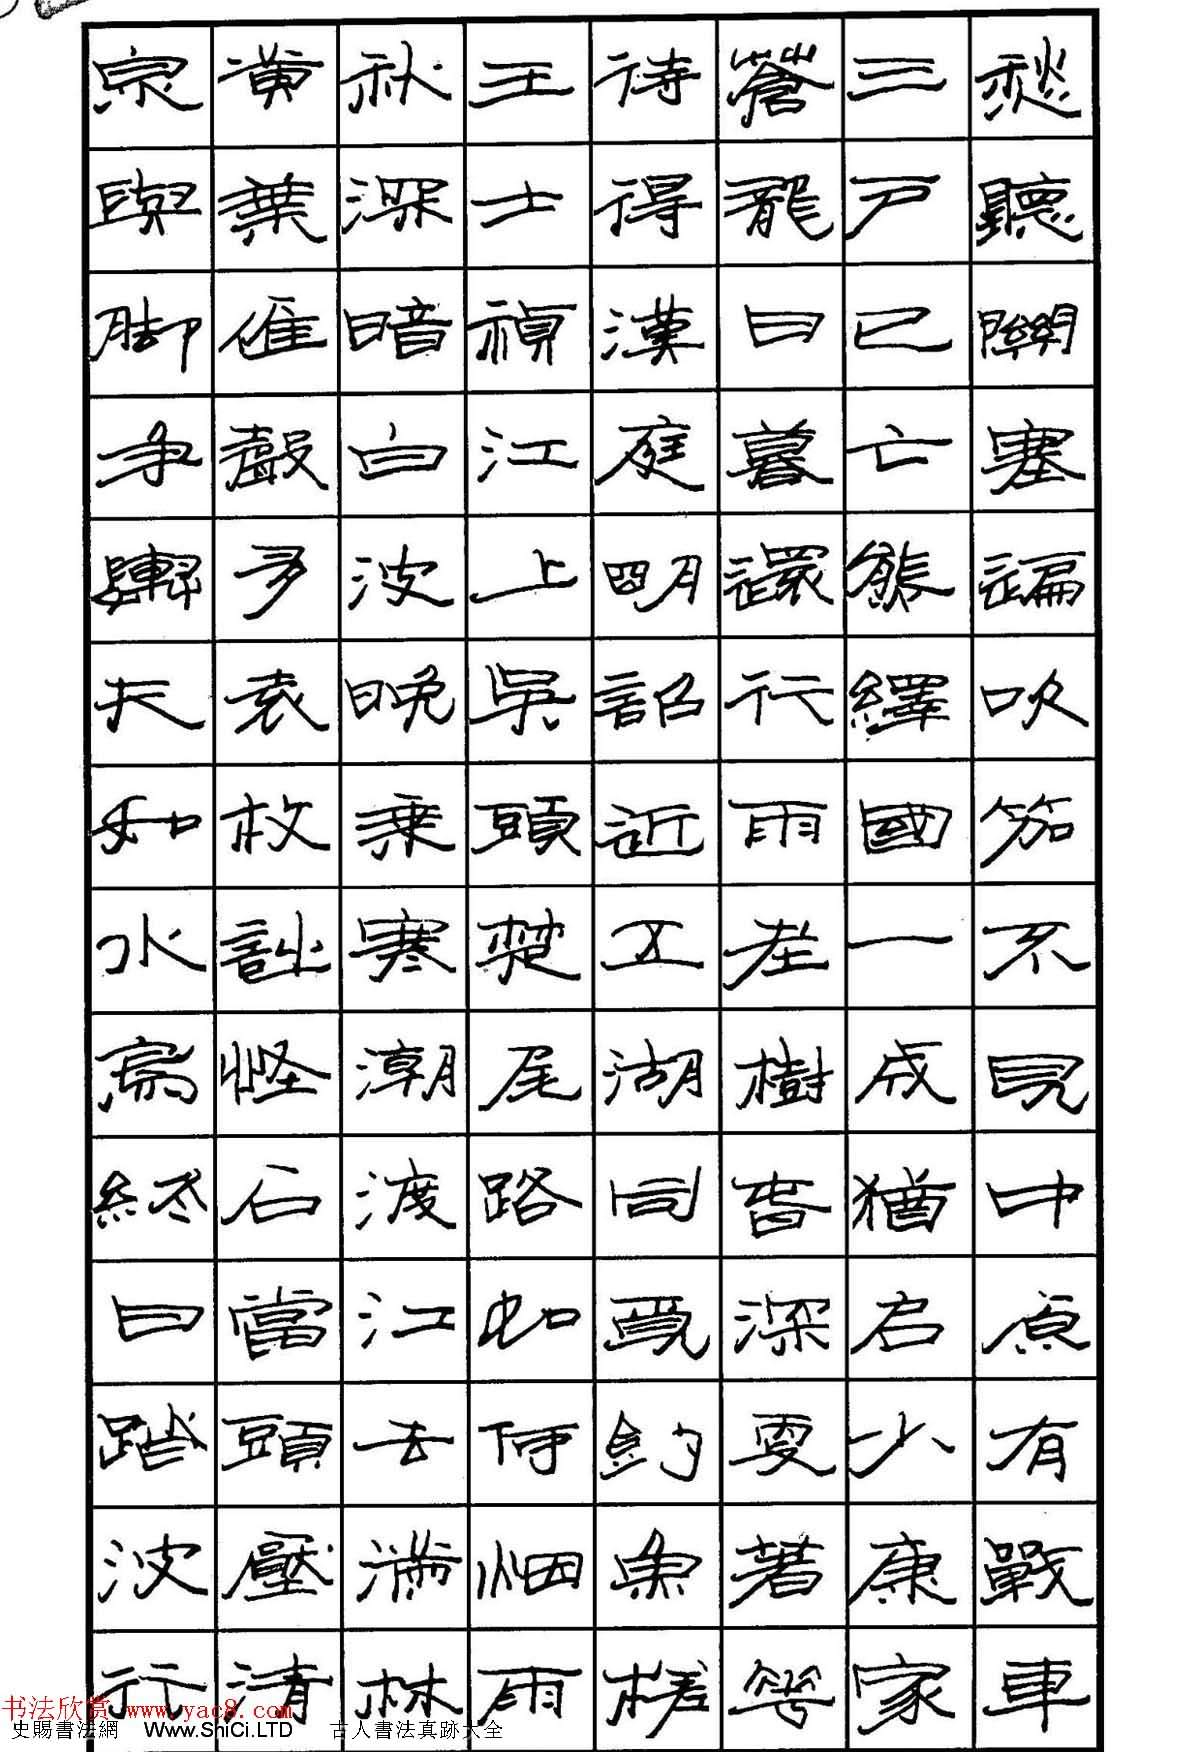 愁聽關塞遍吹笳不見中原有戰車
三戶已亡熊繹國一成猶启少康家
蒼龍日暮還行雨老樹春深更著花
待得漢庭明詔近五湖同覓釣魚槎
王士禎江上吳頭楚尾路如何烟雨
秋深暗白波晚乘寒潮渡江去滿林
黃葉雁聲多袁枚詩怪石當頭壓清
泉與腳爭輿夫如水鳥終日踏波行
书法欣赏 www.yac8.com
史賜書法網 Www.ShiCi.LTD 古人書法真跡大全